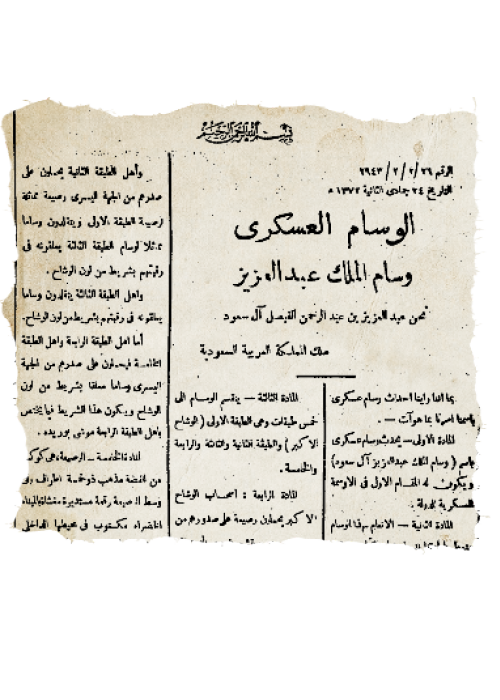 بسم الله الرحمن الرحيم
الرقم ٢٦/٢/٢/٢٩٤٣
التاريخ ٢٤ جمادى الثانية ١٣٧٢ هـ
الوسام العسكرى
وسام الملك عبد العزيز
نحن عبد العزيز بن عبد الرحمن الفيصل آل سعود
ملك المملكة العربية السعودية
بما اننا راينا احداث وسام عسكرى
باسمنا امرنا بما هو آت —
المادة الاولى — يحدث وسام عسكرى
باسم ( وسام الملك عبد العزيز آل سعود)
ويكون له المقام الاول فى الاوسمة
العسكرية للدولة .
المادة الثانية — الانعام بهذا الوسام
المادة الثالثة — ينقسم الوسام الى
خمس طبقات وهى الطبقة الاولى ( الوشاح
الاكبر ) والطبقة الثانية والثالثة والرابعة
والخامسة .
المادة الرابعة : اصحاب الوشاح
الاكبر يحملون رصيعة على صدورهم من
وأهل الطبقة الثانية يحملون على
صدرهم من الجهة اليسرى رصيعة مماثلة
لرصيعة الطبقة الاولى ويتقلدون وساما
مماثلا لوسام الطبقة الثالثة يعلقونه فى
رقبتهم بشريط من لون الوشاح .
واهل الطبقة الثالثة يتقلدون وساما
يعلقونه فى رقبتهم بشريط من لون الوشاح.
أما اهل الطبقة الرابعة واهل الطبقة
الخامسة فيحملون على صدرهم من الجهة
اليسرى وساما معلقا بشريط من لون
الوشاح ويكون هذا الشريط فيما يختص
بأهل الطبقة الرابعة موشى بوريده .
المادة الخامسة — الرصيعة هى كوكب
من الفضة مذهب ذو خمسة اطراف وفى
وسط الرصيعة رقعة مستديرة مغشاة بالميناء
الخضراء مكتوب فى محيطها الداخلى